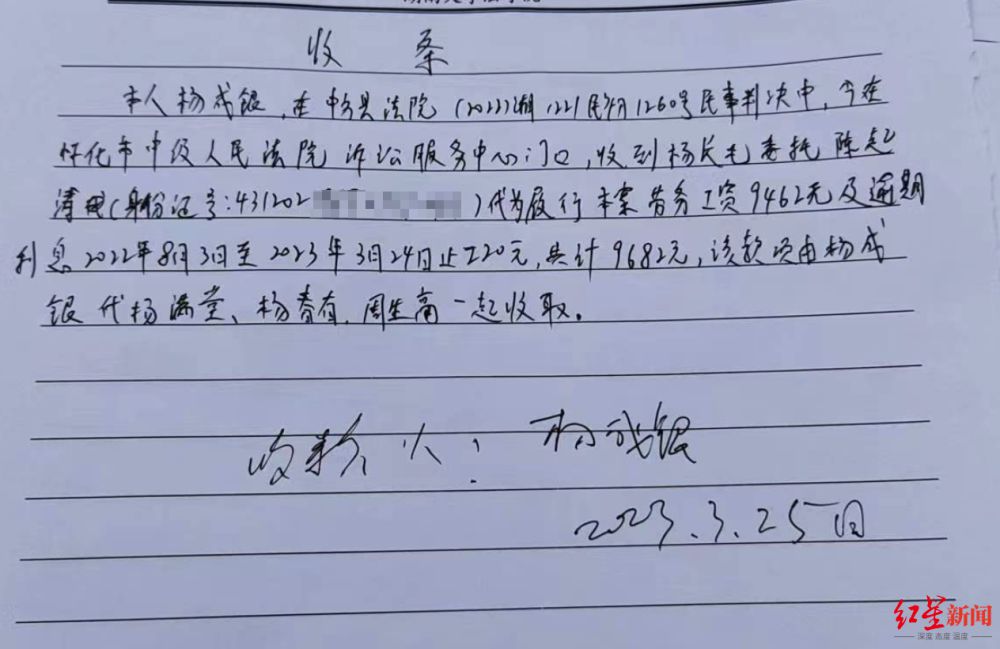 收 条
本人杨成银,在中方县法院(2022)湘1221民初1260号民事判决中,今在
怀化市中级人民法院诉讼服务中心门口,收到杨长毛委托陈起
(身份证号:431202 )代为履行本案劳务工资9462元及逾期
利息2022年8月3日至2023年3月24日止220元,共计9682元,该款项由杨成
银代杨满堂、杨春有、周生高一起收取。
收款人:杨成银
2023.3.25日
红星新闻
深度 高度 温度